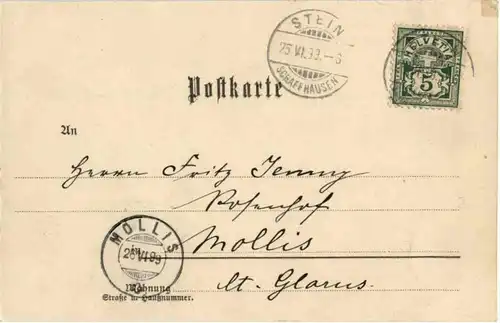 STEIN
25.VI.99.–6
SCHAFFHAUSEN
HELVETIA
5
Postkarte
An
Herrn Fritz Jenny
Rosenhof
Mollis
Ct. Glarus.
MOLLIS
26.VI.99
Wohnung
Straße u. Hausnummer.